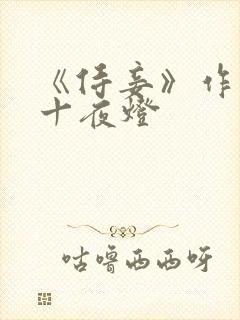 《侍妾》作
十夜燈
咕噜西西呀